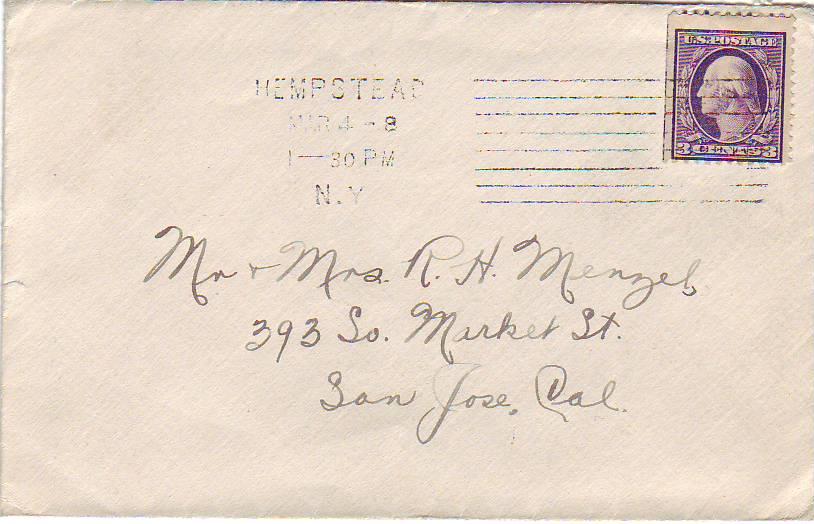 U.S. POSTAGE
3 CENTS 3
HEMPSTEAD
MAR 4 - 8
1 - 30 PM
N.Y
Mr + Mrs. R. H. Menzel,
393 So. Market St.
San Jose, Cal.